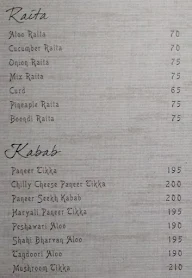 Raita
Aloo Raita 70
Cucumber Raita 70
Onion Raita 75
Mix Raita 75
Curd 65
Pineapple Raita 75
Boondi Raita 75
Kabab
Paneer Tikka 195
Chilly Cheese Paneer Tikka 200
Paneer Seekh Kabab 200
Haryali Paneer Tikka 195
Peshawari Aloo 190
Shahi Bharvan Aloo 195
Tandoori Aloo 190
Mushroom Tikka 210